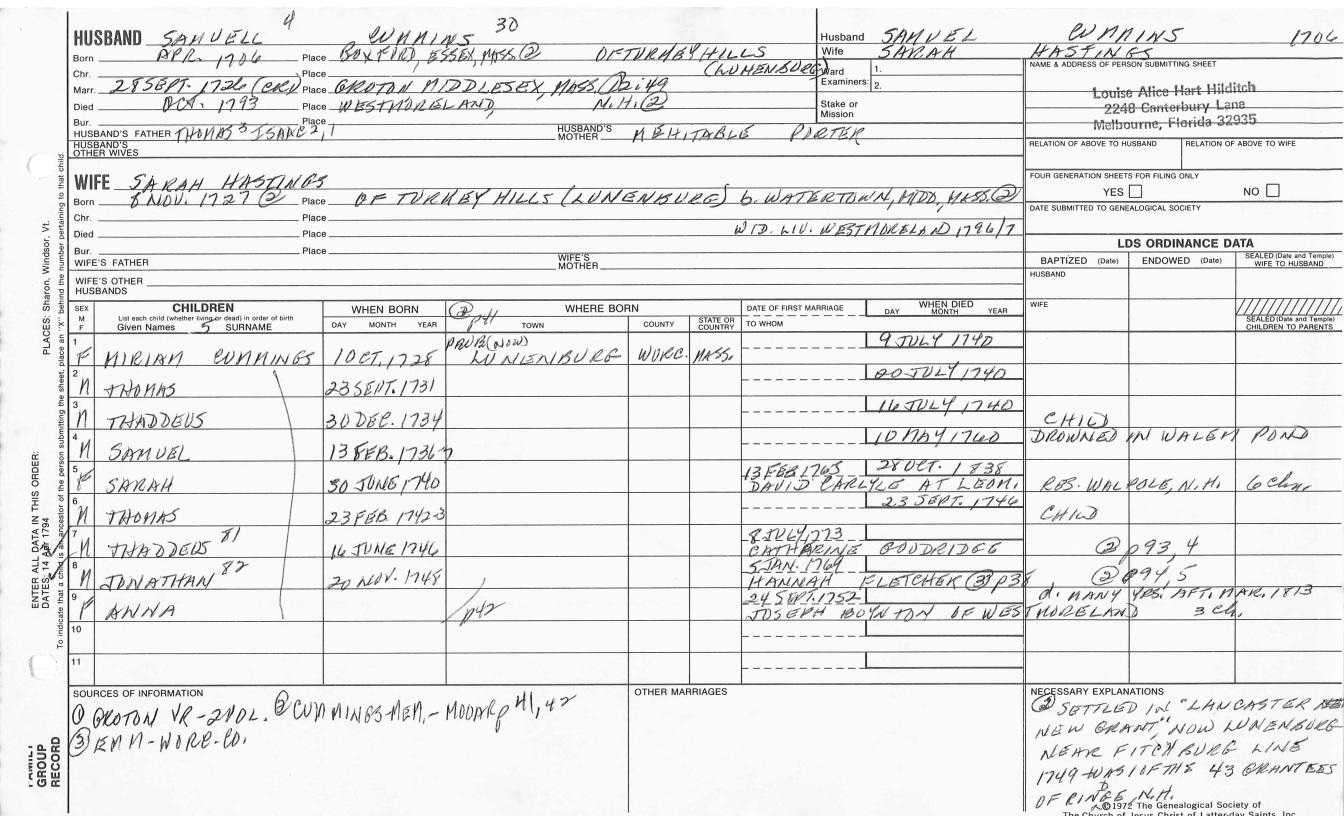 4 30
HUSBAND SAMUELL CUMMINS
Born APR. 1706 Place BOXFORD, ESSEX, MASS. (2) OF TURKEY HILLS
Chr. Place (LUNENBURG)
Marr. 28 SEPT. 1726 (CRD) Place GROTON MIDDLESEX, MASS. (1) 2:49
Died OCT. 1793 Place WESTMORELAND, N.H. (2)
Bur. Place
HUSBAND'S FATHER THOMAS 3 ISAAC 2, 1 HUSBAND'S MOTHER MEHITABLE PORTER
HUSBAND'S OTHER WIVES
Husband SAMUEL CUMMINS 1706
Wife SARAH HASTINGS
Ward 1.
Examiners: 2.
Stake or Mission
NAME & ADDRESS OF PERSON SUBMITTING SHEET
Louise Alice Hart Hilditch
2248 Canterbury Lane
Melbourne, Florida 32935
RELATION OF ABOVE TO HUSBAND RELATION OF ABOVE TO WIFE
FOUR GENERATION SHEETS FOR FILING ONLY
YES NO
DATE SUBMITTED TO GENEALOGICAL SOCIETY
WIFE SARAH HASTINGS
Born 8 NOV. 1727 (2) Place OF TURKEY HILLS (LUNENBURG) b. WATERTOWN, MIDD, MASS. (2)
Chr. Place
Died Place WID. LIV. WESTMORELAND 1796/7
Bur. Place
WIFE'S FATHER WIFE'S MOTHER
WIFE'S OTHER HUSBANDS
LDS ORDINANCE DATA
BAPTIZED (Date) ENDOWED (Date) SEALED (Date and Temple) WIFE TO HUSBAND
HUSBAND
WIFE
SEALED (Date and Temple) CHILDREN TO PARENTS
SEX M F CHILDREN WHEN BORN (2) p41 WHERE BORN DATE OF FIRST MARRIAGE WHEN DIED
List each child (whether living or dead) in order of birth
Given Names 5 SURNAME DAY MONTH YEAR TOWN COUNTY STATE OR COUNTRY TO WHOM DAY MONTH YEAR
PROB (NOW) 9 JULY 1740
1 F MIRIAM CUMMINGS 1 OCT. 1728 LUNENBURG WORC. MASS.
20 JULY 1740
2 M THOMAS 23 SEPT. 1731
16 JULY 1740
3 M THADDEUS 30 DEC. 1734 CHILD
10 MAY 1760 DROWNED IN WALEM POND
4 M SAMUEL 13 FEB. 1736 7
13 FEB 1765 28 OCT. 1838
5 F SARAH 30 JUNE 1740 DAVID CARLYLE AT LEOM. RES. WALPOLE, N.H. 6 chn,
23 SEPT. 1746
6 M THOMAS 23 FEB 1742-3 CHILD
8 JULY 1773
7 M THADDEUS 81 16 JUNE 1746 CATHARINE GOODRIDGE (2) p93, 4
5 JAN. 1769
8 M JONATHAN 82 20 NOV. 1748 HANNAH FLETCHER (3) p38 (2) p94, 5
24 SEPT. 1752 d. MANY YRS. AFT. MAR. 1813
9 F ANNA p42 JOSEPH BOYNTON OF WESTMORELAND 3 Ch.
10
11
SOURCES OF INFORMATION
(1) GROTON VR-2VOL. (2) CUMMINGS MEM.-MOOAR p 41, 42
(3) EMM-WORC-CO.
OTHER MARRIAGES
NECESSARY EXPLANATIONS
(2) SETTLED IN "LANCASTER
NEW GRANT," NOW LUNENBURG
NEAR FITCHBURG LINE
1749 WAS 1 OF THE 43 GRANTEES
OF RINDGE, N.H.
©1972 The Genealogical Society of
The Church of Jesus Christ of Latter-day Saints, Inc.
ENTER ALL DATA IN THIS ORDER:
DATES: 14 Apr 1794
PLACES: Sharon, Windsor, Vt.
To indicate that a child is an ancestor of the person submitting the sheet, place an "X" behind the number pertaining to that child.
FAMILY GROUP RECORD